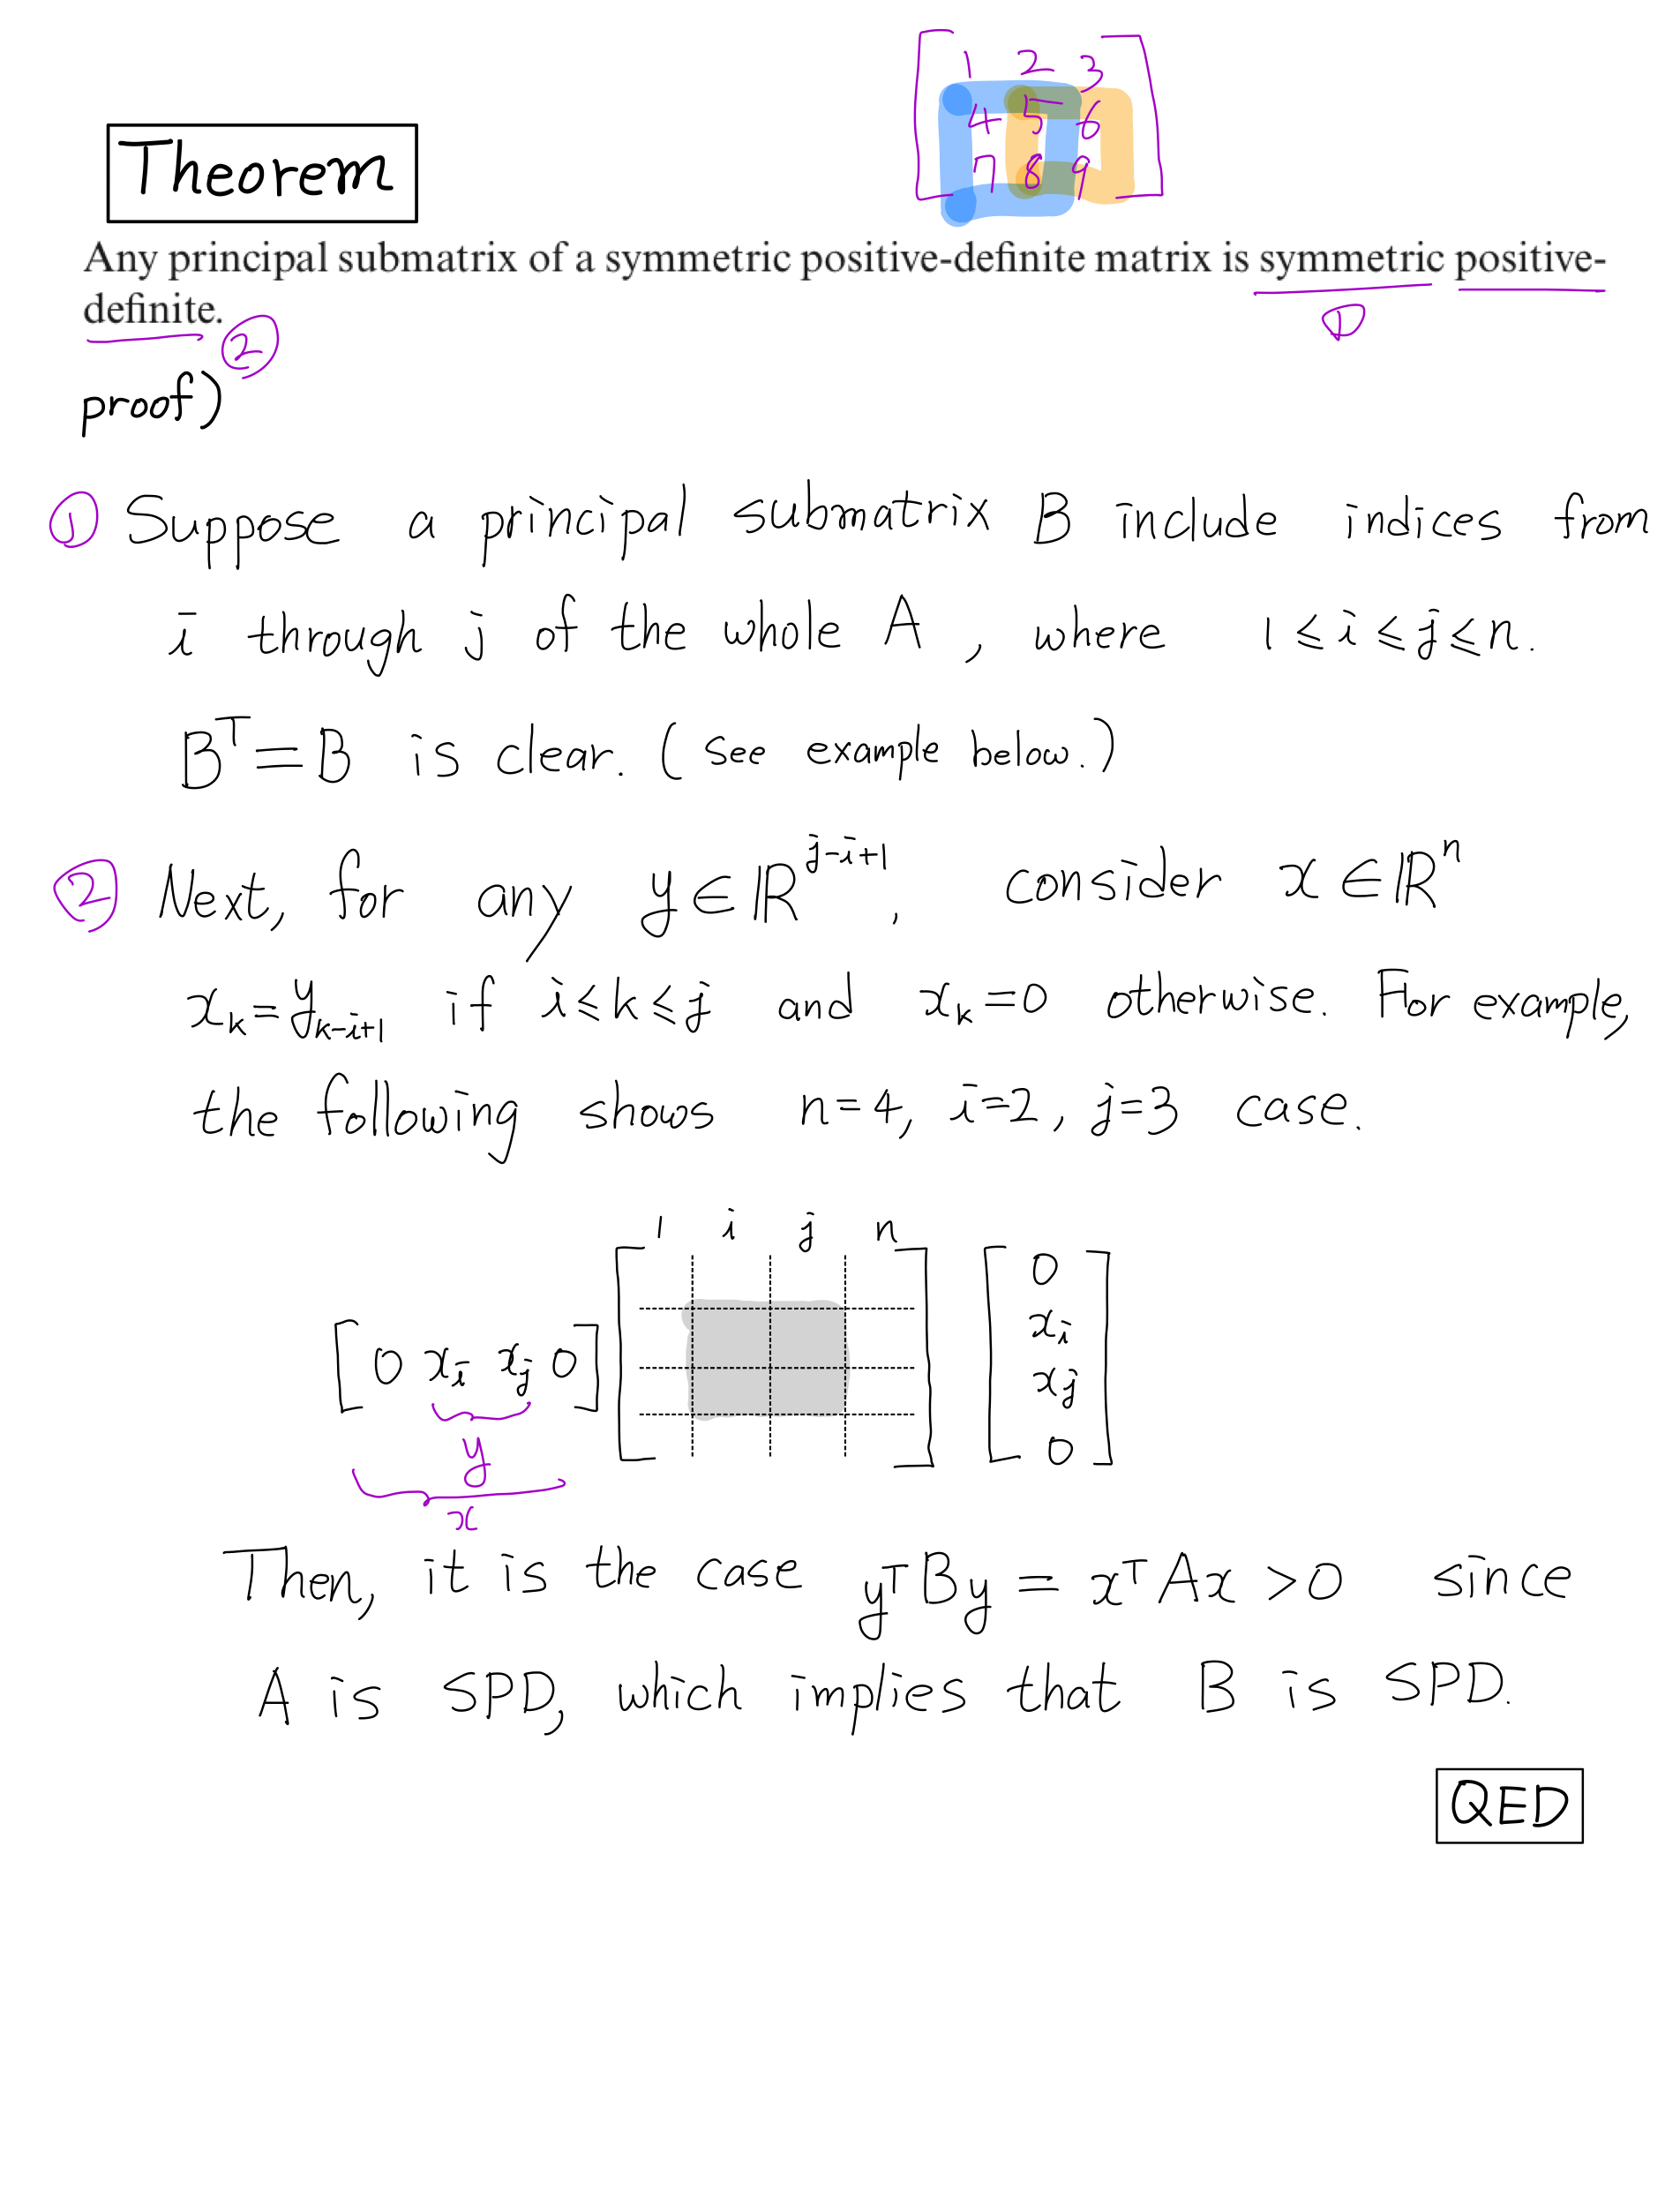 1 2 3
4 5 6
7 8 9
Theorem
Any principal submatrix of a symmetric positive-definite matrix is symmetric positive-
definite.
①
②
proof)
① Suppose a principal submatrix B include indices from
i through j of the whole A, where 1≤i≤j≤n.
Bᵀ=B is clear. (see example below.)
② Next, for any y∈ℝ^{j-i+1}, consider x∈ℝⁿ
x_k=y_{k-i+1} if i≤k≤j and x_k=0 otherwise. For example,
the following shows n=4, i=2, j=3 case.
1 i j n
[0 x_i x_j 0]
0
x_i
x_j
0
y
x
Then, it is the case yᵀBy = xᵀAx >0 since
A is SPD, which implies that B is SPD.
QED